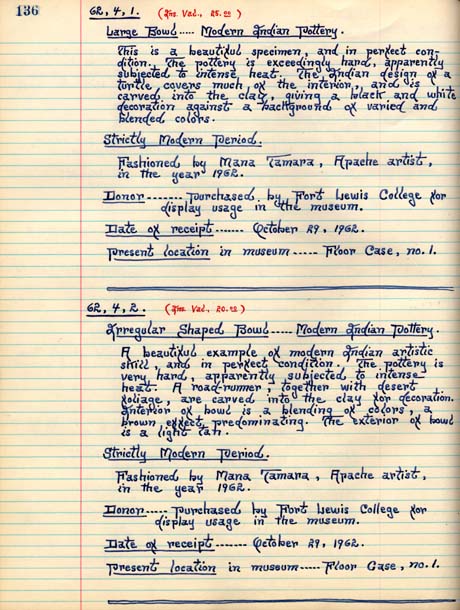 136
62, 4, 1. (Ins. Val., 25.00)
Large Bowl ..... Modern Indian Pottery.
This is a beautiful specimen, and in perfect con-
dition. The pottery is exceedingly hard, apparently
subjected to intense heat. The Indian design of a
turtle covers much of the interior, and is
carved into the clay, giving a black and white
decoration against a background of varied and
blended colors.
Strictly Modern Period.
Fashioned by Mana Tamara, Apache artist,
in the year 1962.
Donor ------- Purchased by Fort Lewis College for
display usage in the museum.
Date of receipt ------- October 29, 1962.
Present location in museum ----- Floor Case, no. 1.
62, 4, 2. (Ins. Val., 20.00)
Irregular Shaped Bowl ----- Modern Indian Pottery.
A beautiful example of modern Indian artistic
skill, and in perfect condition. The pottery is
very hard, apparently subjected to intense
heat. A road-runner, together with desert
foliage, are carved into the clay for decoration.
Interior of bowl is a blending of colors, a
brown effect predominating. The exterior of bowl
is a light tan.
Strictly Modern Period.
Fashioned by Mana Tamara, Apache artist,
in the year 1962.
Donor ----- Purchased by Fort Lewis College for
display usage in the museum.
Date of receipt ------- October 29, 1962.
Present location in museum ----- Floor Case, no. 1.